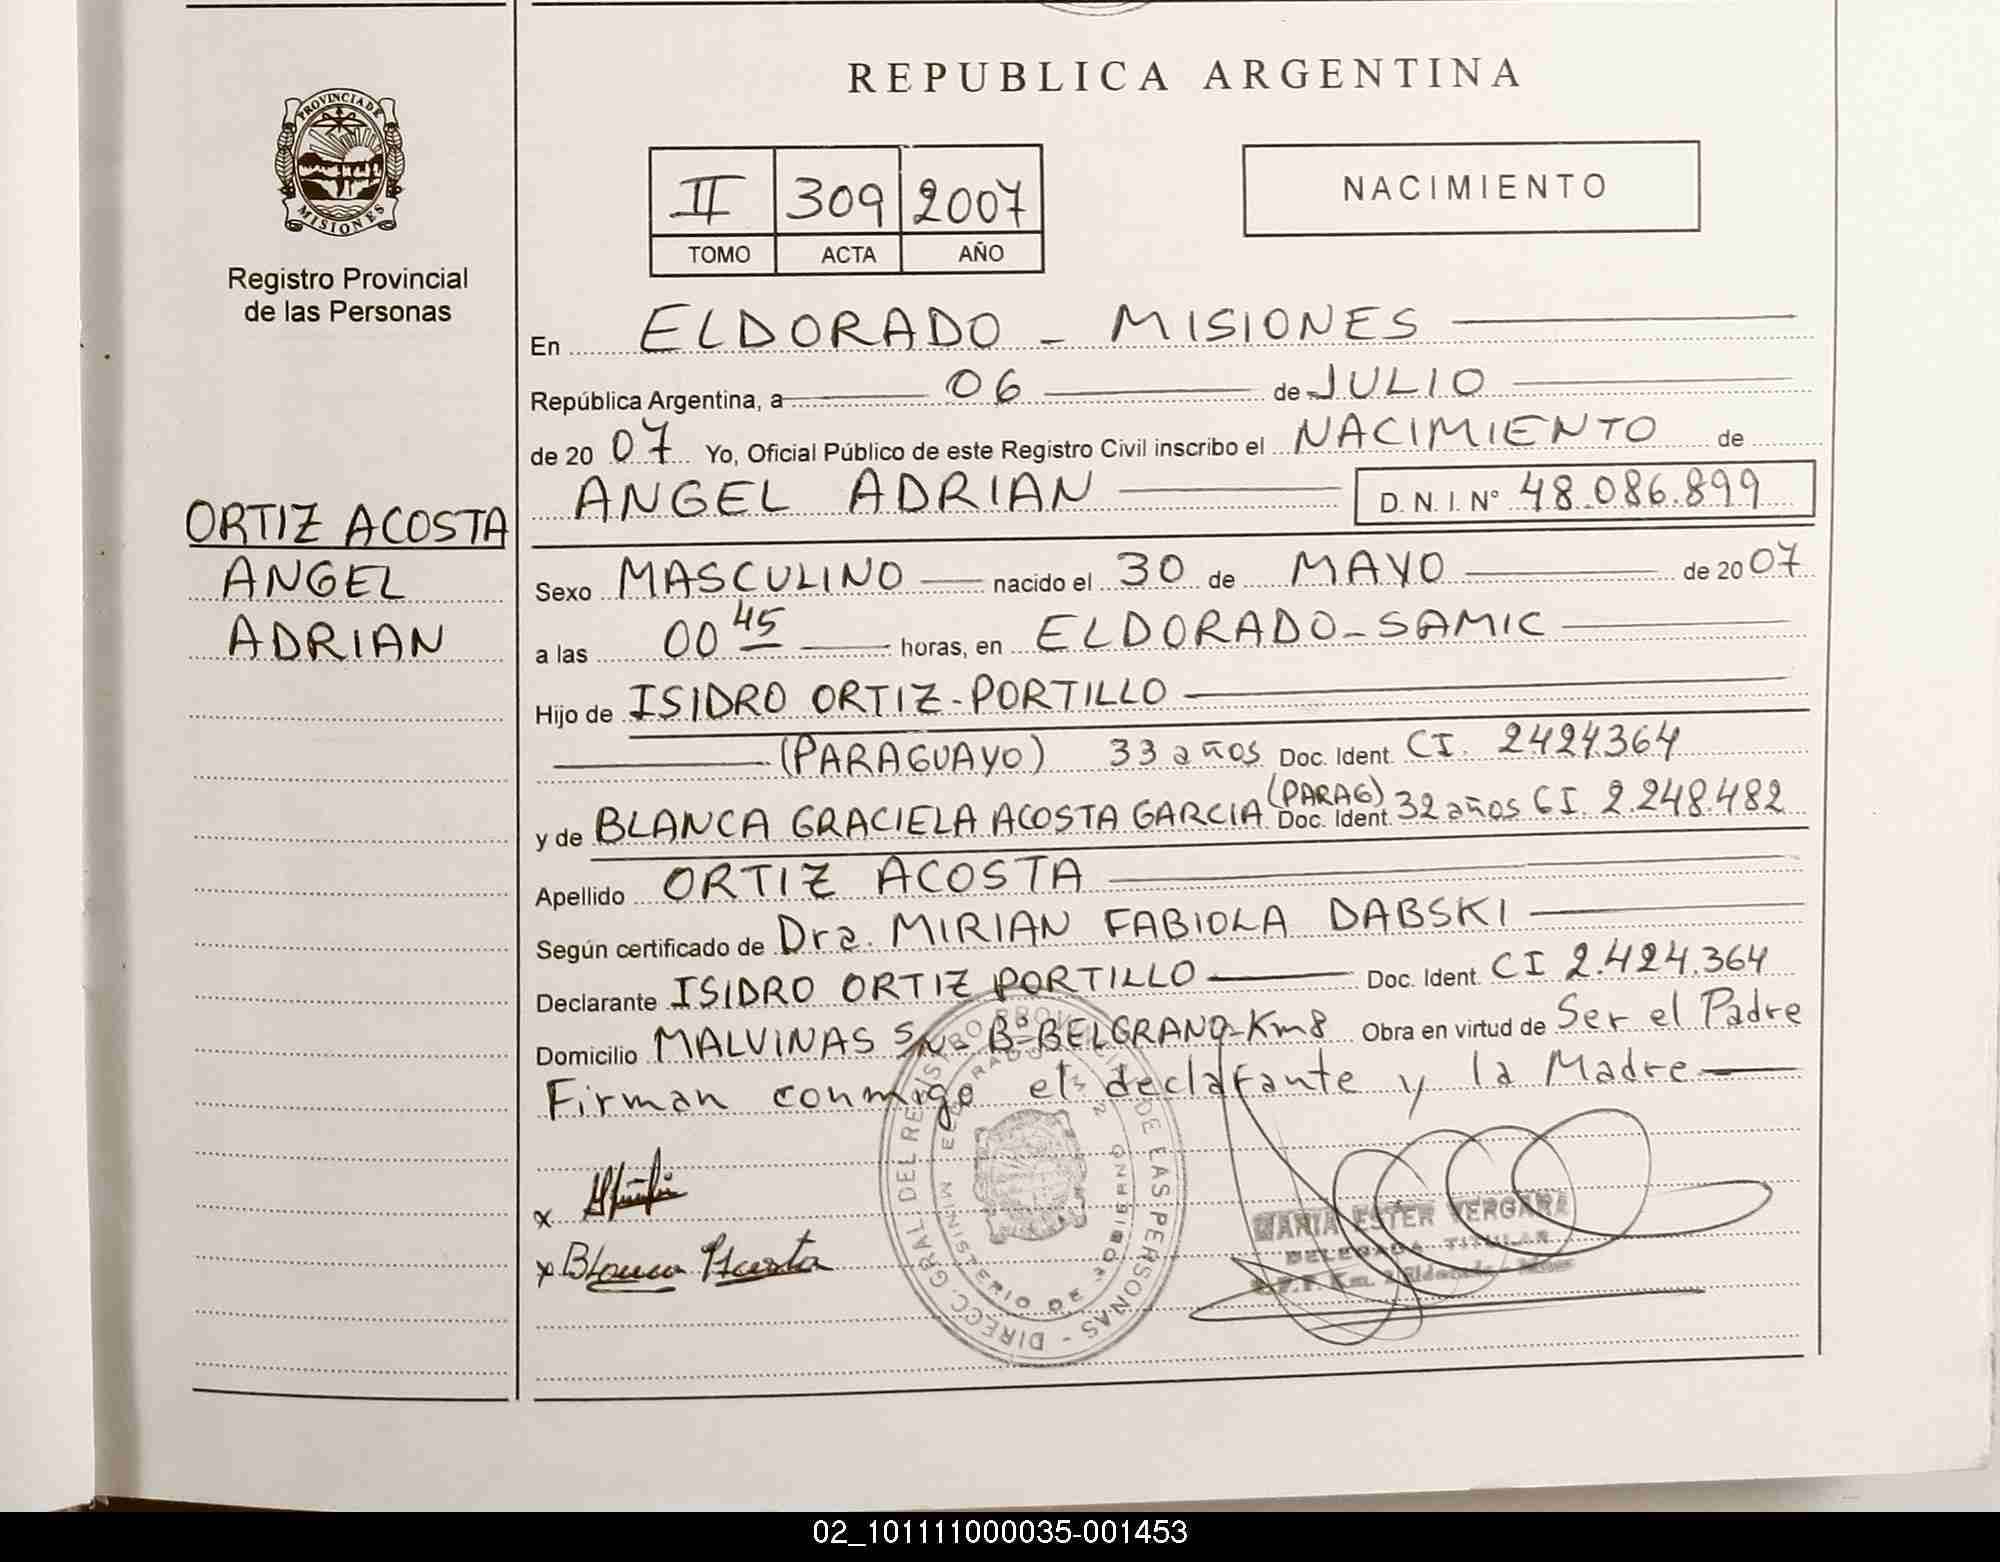 REPUBLICA ARGENTINA
PROVINCIA DE
MISIONES
Registro Provincial
de las Personas
II 309 2007
TOMO ACTA AÑO
NACIMIENTO
En ELDORADO - MISIONES
República Argentina, a 06 de JULIO
de 20 07 Yo, Oficial Público de este Registro Civil inscribo el NACIMIENTO de
ANGEL ADRIAN D. N. I. N° 48.086.899
ORTIZ ACOSTA
ANGEL
ADRIAN
Sexo MASCULINO nacido el 30 de MAYO de 20 07
a las 00 45 horas, en ELDORADO-SAMIC
Hijo de ISIDRO ORTIZ-PORTILLO
(PARAGUAYO) 33 años Doc. Ident. CI. 2424.364
y de BLANCA GRACIELA ACOSTA GARCIA (PARAG) Doc. Ident. 32 años CI. 2.248.482
Apellido ORTIZ ACOSTA
Según certificado de Dra. MIRIAN FABIOLA DABSKI
Declarante ISIDRO ORTIZ PORTILLO Doc. Ident. CI 2.424.364
Domicilio MALVINAS S/N - Bº BELGRANO-Km8 Obra en virtud de Ser el Padre
Firman conmigo el declarante y la Madre
x
x Blanca Acosta
DIRECC. GRAL DEL REGISTRO PROVINCIAL DE LAS PERSONAS
MINISTERIO DE GOBIERNO
MARIA ESTER VERGARA
DELEGADA TITULAR
02_101111000035-001453